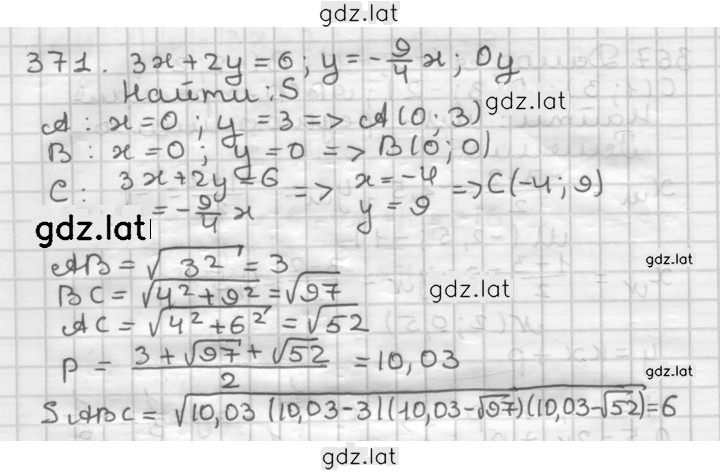 gdz.lat
371. 3x+2y=6; y=-9/4 x; Oy
Найти: S
A: x=0; y=3 => A(0;3)
gdz.lat
B: x=0; y=0 => B(0;0)
C: 3x+2y=6 => x=-4 => C(-4;9)
=-9/4 x y=9
gdz.lat
AB=√3² =3
gdz.lat
BC=√4²+9²=√97
gdz.lat
AC=√4²+6²=√52
P = 3+√97+√52/2 =10,03
gdz.lat
SABC=√10,03 (10,03-3)(10,03-√97)(10,03-√52)=6
gdz.lat